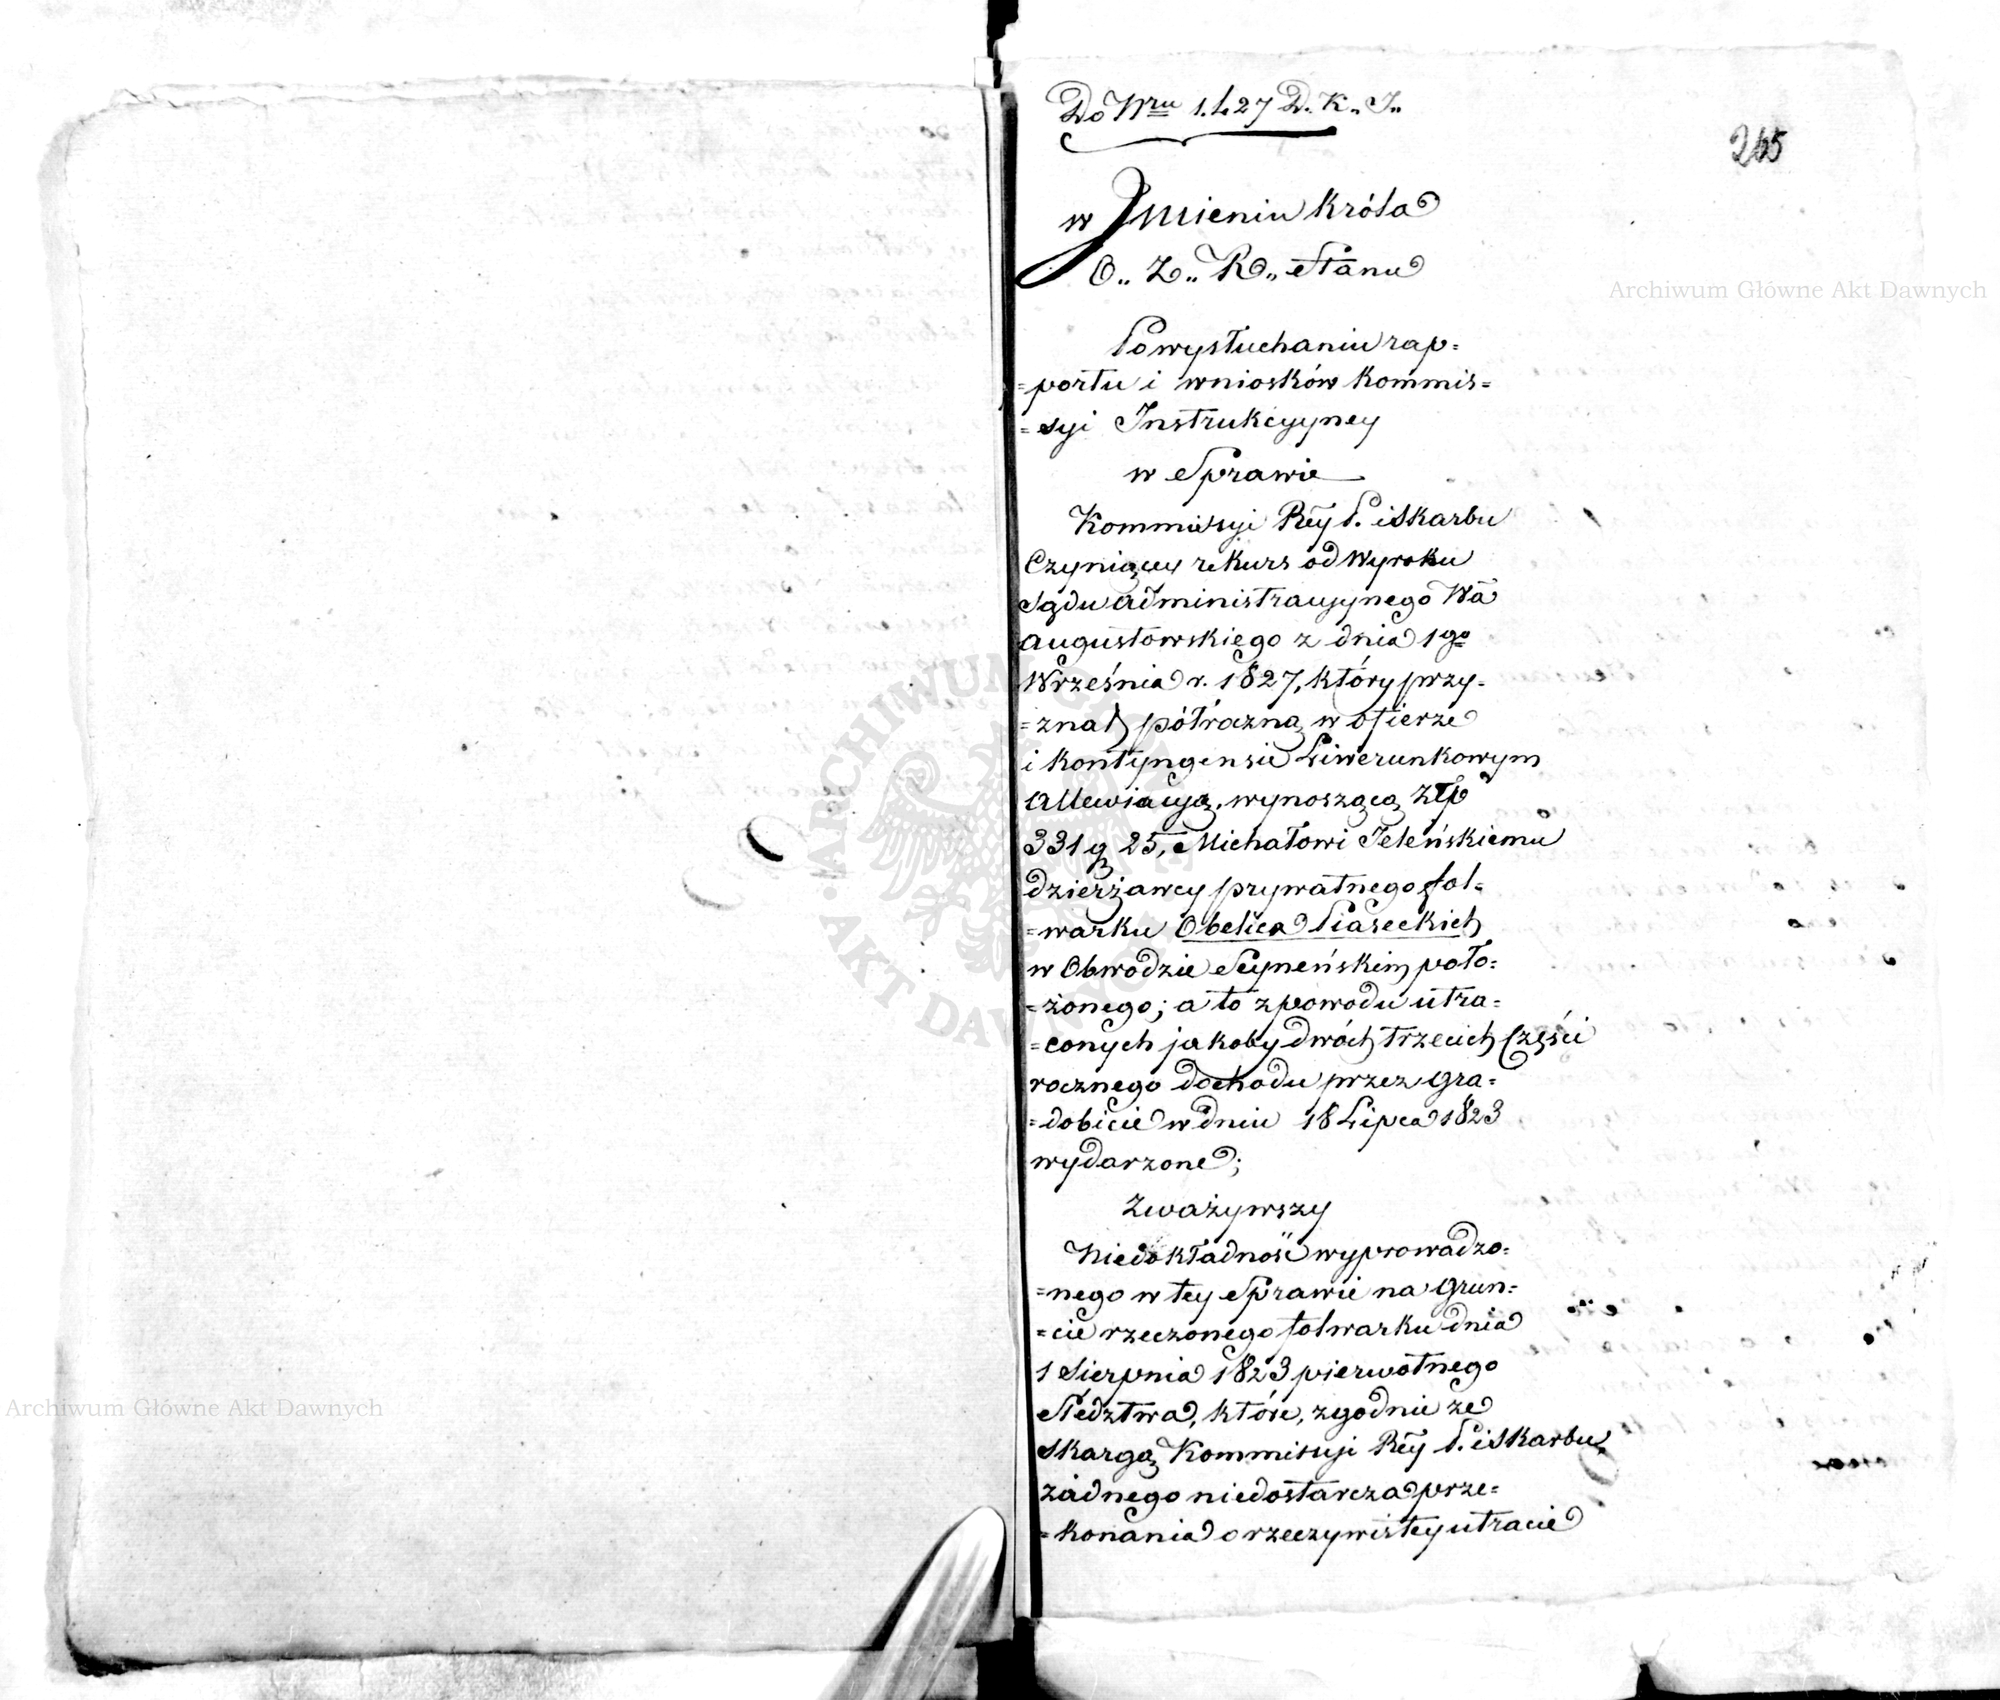 Do Nru 1.427 D. K. I.
265
w Jmieniu Króla
O. Z. R. Stanu
Po wysłuchaniu rap=
=portu i wniosków Kommis=
=syi Instrukcyyney
w Sprawie
Kommissyi Rey P. i Skarbu
Czyniącey rekurs od Wyroku
Sądu Administracyynego Wa
Augustowskiego z dnia 1go
Września r. 1827, który przy=
=znał półraczną w ofierze
i kontyngensie Liwerunkowym
Allewiacyą, wynoszącą Złp
331 g 25, Michałowi Jeleńskiemu
dzierżawcy prywatnego fol=
=warku Obelica Piaseckich
w Obwodzie Seyneńskim poło=
=żonego; a to z powodu utra=
=conych jakoby dwóch trzecich Części
rocznego dochodu przez gra=
=dobicie w dniu 18 Lipca 1823
wydarzone;
Zważywszy
Niedokładność wyprowadzo=
=nego w tey Sprawie na grun=
=cie rzeczonego folwarku dnia
1 Sierpnia 1823 pierwotnego
Śledztwa, które, zgodnie ze
skargą Kommissyi Rey P. i Skarbu,
żadnego niedostarcza prze=
=konania o rzeczywistey utracie
Archiwum Główne Akt Dawnych
Archiwum Główne Akt Dawnych
ARCHIWUM GŁÓWNE
AKT DAWNYCH